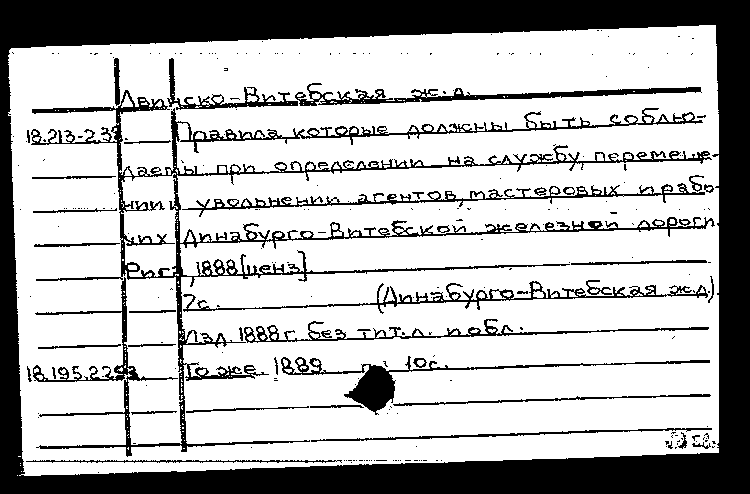 Двинско-Витебская ж.д.
18.213-2.38. Правила, которые должны быть соблю-
даемы при определении на службу, перемеще-
нии и увольнении агентов, мастеровых и рабо-
чих Динабурго-Витебской железной дороги.
Рига, 1888 [ценз].
2с. (Динабурго-Витебская ж.д.).
Изд. 1888 г. без тит.л. и обл.
18.195.2.293. То же. 1889. 10с.